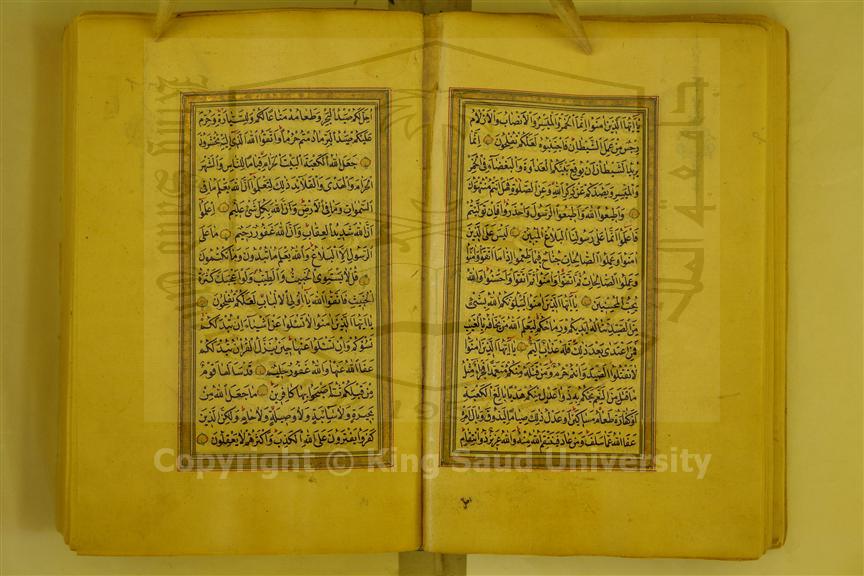 يا أيها الذين آمنوا إنما الخمر والميسر والأنصاب والأزلام
رجس من عمل الشيطان فاجتنبوه لعلكم تفلحون إنما
يريد الشيطان أن يوقع بينكم العداوة والبغضاء في الخمر
والميسر ويصدكم عن ذكر الله وعن الصلوة فهل أنتم منتهون
وأطيعوا الله وأطيعوا الرسول واحذروا فإن توليتم
فاعلموا أنما على رسولنا البلاغ المبين ليس على الذين
آمنوا وعملوا الصالحات جناح فيما طعموا إذا ما اتقوا وآمنوا
وعملوا الصالحات ثم اتقوا وآمنوا ثم اتقوا وأحسنوا والله
يحب المحسنين يا أيها الذين آمنوا ليبلونكم الله بشيء
من الصيد تناله أيديكم ورماحكم ليعلم الله من يخافه بالغيب
فمن اعتدى بعد ذلك فله عذاب أليم يا أيها الذين آمنوا
لا تقتلوا الصيد وأنتم حرم ومن قتله منكم متعمدا فجزاء مثل
ما قتل من النعم يحكم به ذوا عدل منكم هديا بالغ الكعبة
أو كفارة طعام مساكين أو عدل ذلك صياما ليذوق وبال أمره
عفا الله عما سلف ومن عاد فينتقم الله منه والله عزيز ذو انتقام
أحل لكم صيد البحر وطعامه متاعا لكم وللسيارة وحرم
عليكم صيد البر ما دمتم حرما واتقوا الله الذي إليه تحشرون
جعل الله الكعبة البيت الحرام قياما للناس والشهر
الحرام والهدي والقلائد ذلك لتعلموا أن الله يعلم ما في
السموات وما في الأرض وأن الله بكل شيء عليم اعلموا
أن الله شديد العقاب وأن الله غفور رحيم ما على
الرسول إلا البلاغ والله يعلم ما تبدون وما تكتمون
قل لا يستوي الخبيث والطيب ولو أعجبك كثرة
الخبيث فاتقوا الله يا أولي الألباب لعلكم تفلحون
يا أيها الذين آمنوا لا تسئلوا عن أشياء إن تبد لكم
تسؤكم وإن تسئلوا عنها حين ينزل القرآن تبد لكم
عفا الله عنها والله غفور حليم قد سألها قوم
من قبلكم ثم أصبحوا بها كافرين ما جعل الله من
بحيرة ولا سائبة ولا وصيلة ولا حام ولكن الذين
كفروا يفترون على الله الكذب وأكثرهم لا يعقلون
جامعة الملك سعود
King Saud University
1957
Copyright © King Saud University